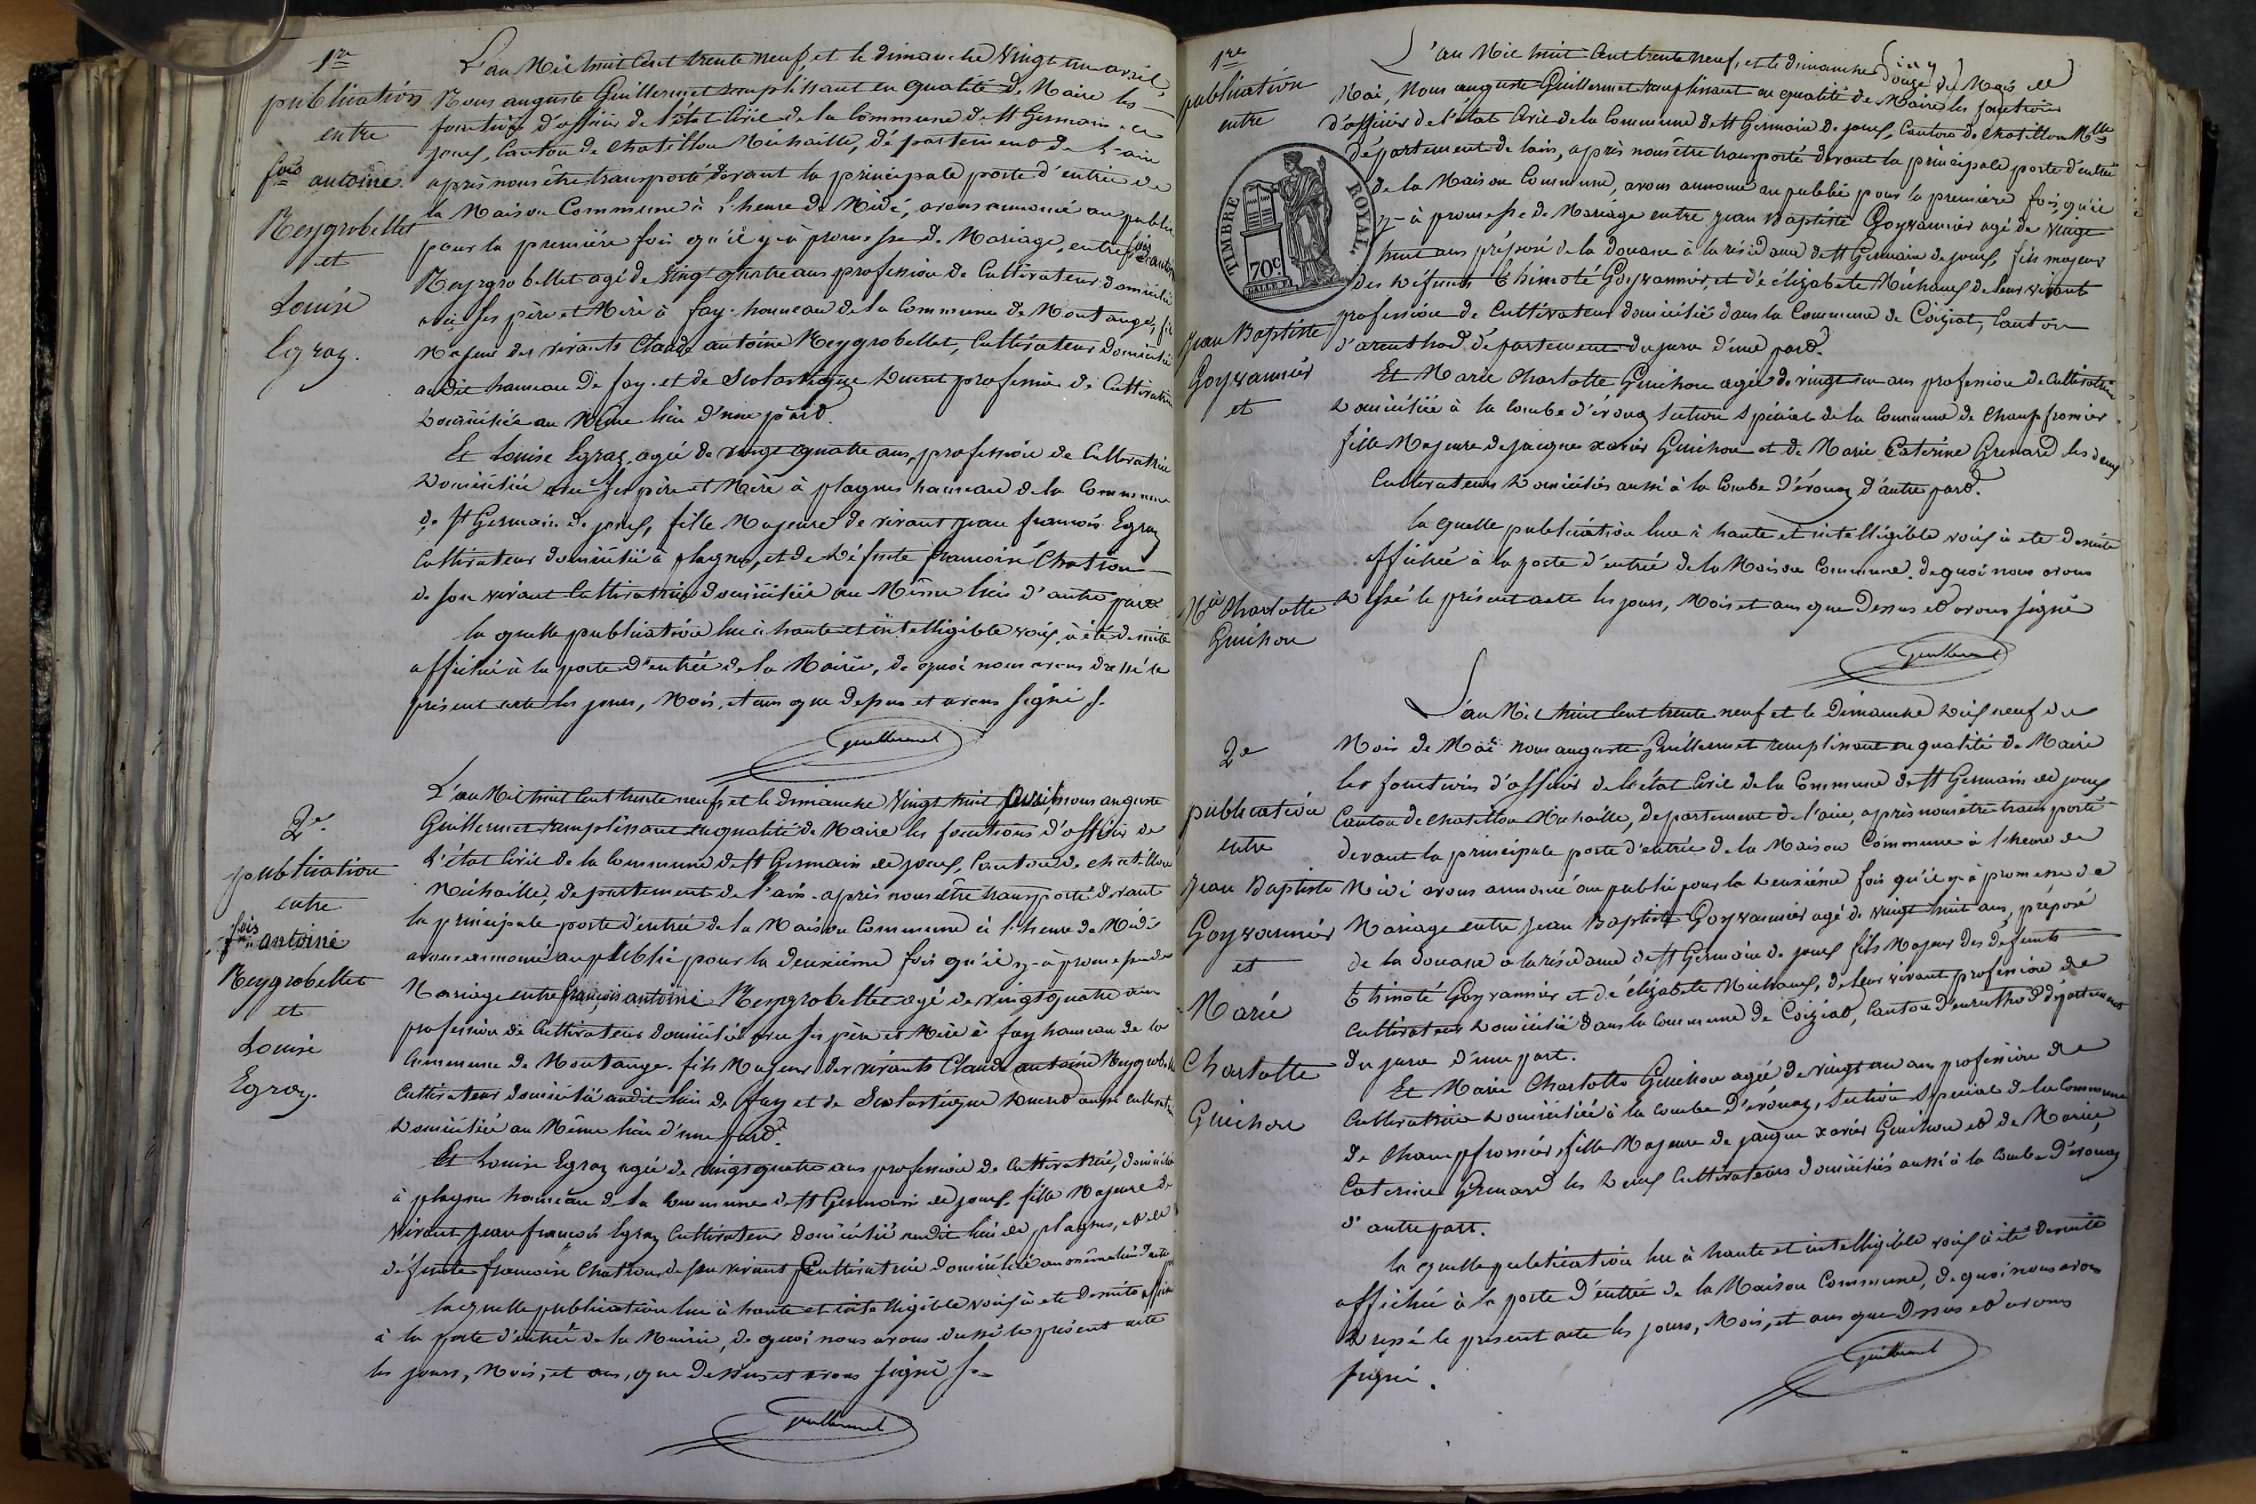 1re
publication
entre
fois antoine
Reygrobellet
et
Louise
Egraz.
L'an Mil huit Cent trente neuf, et le dimanche Vingt un avril,
Nous auguste Guillermet remplissant en qualité de Maire les
fonctions d'officier de l'état Civil de la Commune de St Germain de
joux, Canton de Chatillon Michaille, département de l'ain
après nous être transporté devant la principale porte d'entrée de
la Maison Commune à l'heure de Midi, avons annoncé au public
pour la première fois qu'il y à promesse de Mariage, entre fois antoine
Reygrobellet agé de Vingt quatre ans profession de Cultivateur domicilié
avec ses père et Mère à fay hameau de la Commune de Montange, fils
Majeur des vivants Claude antoine Reygrobellet, Cultivateur domicilié
audit hameau de fay et de Scolastique Ducret profession de Cultivatrice
Domiciliée au Même lieu d'une part.
Et Louise Egraz agée de vingt quatre ans, profession de Cultivatrice
Domiciliée avec ses père et Mère à plagnes hameau de la Commune
de St Germain de joux, fille Majeure de vivant jean françois Egraz
Cultivateur domicilié à plagnes, et de Défunte françoise Chatron
de son vivant Cultivatrice domiciliée au Même lieu d'autre part.
la quelle publication lue à haute et intelligible voix, à été de suite
affichée à la porte d'entrée de la Mairie, de quoi nous avons dressé le
présent acte les jours, Mois, et ans que dessus et avons signé
Guillermet
2e
publication
entre
fois antoine
Reygrobellet
et
Louise
Egraz.
L'an Mil huit Cent trente neuf, et le dimanche Vingt huit avril, nous auguste
Guillermet remplissant en qualité de Maire les fonctions d'officier de
l'état Civil de la Commune de St Germain de joux, Canton de Chatillon
Michaille, département de l'ain. après nous être transporté devant
la principale porte d'entrée de la Maison Commune à l'heure de Midi
avons annoncé au public pour la deuxième fois qu'il y à promesse de
Mariage entre françois antoine Reygrobellet agé de vingt quatre ans
profession de Cultivateur domicilié avec ses père et Mère à fay hameau de la
Commune de Montange. fils Majeur des vivants Claude antoine Reygrobellet
Cultivateur domicilié audit lieu de fay et de Scolastique Ducret aussi cultivatrice
Domiciliée au Même lieu d'une part.
Et Louise Egraz agée de vingt quatre ans profession de Cultivatrice, domiciliée
à plagnes hameau de la Commune de St Germain de joux. fille Majeure de
vivant jean françois Egraz Cultivateur domicilié audit lieu de plagnes, et de
défunte françoise Chatron de son vivant Cultivatrice domiciliée au même lieu d'autre part
la quelle publication lue à haute et intelligible voix à été de suite affichée
à la porte d'entrée de la Mairie, de quoi nous avons dressé le présent acte
les jours, Mois, et ans, que Dessus et avons signé
Guillermet
1re
publication
entre
TIMBRE ROYAL.
70c
Jean Baptiste
Goyvannier
et
Mie Charlotte
Guichon
L'an Mil huit Cent trente neuf, et le dimanche Douze du Mois de
Mai, Nous auguste Guillermet remplissant en qualité de Maire les fonctions
d'officier de l'état Civil de la Commune de St Germain de joux, Canton de Chatillon Mlle
département de lain, après nous être transporté devant la principale porte d'entrée
de la Maison Commune, avons annoncé au public pour la première fois, qu'il
y à promesse de Mariage entre jean Baptiste Goyvannier agé de vingt
huit ans préposé de la douane à la résidance de St Germain de joux, fils majeur
des Défunts Thimoté Goyvannier, et d'élizabete Michaux de leur vivant
profession de Cultivateur domiciliés dans la Commune de Coiziat, Canton
d'arenthod département du jura d'une part.
Et Marie Charlotte Guichon agée de vingt un ans profession de Cultivatrice
Domiciliée à la Combe d'évouaz section Spécial de la Commune de Champfromier
fille Majeure de jacque xavier Guichon et de Marie Caterine Grenard les deux
Cultivateurs Domiciliés aussi à la Combe d'évouaz d'autre part.
la quelle publication lue à haute et intelligible voix à été de suite
affichée à la porte d'entrée de la Maison Commune. de quoi nous avons
Dressé le présent acte les jours, Mois et ans que Dessus et avons signé
Guillermet
2e
publication
entre
Jean Baptiste
Goyvannier
et
Marie
Charlotte
Guichon
L'an Mil huit Cent trente neuf et le Dimanche Dix neuf du
Mois de Mai nous auguste Guillermet remplissant en qualité de Maire
les fonctions d'officier de l'état Civil de la Commune de St Germain de joux
Canton de Chatillon Michaille, département de l'ain, après nous être transporté
devant la principale porte d'entrée de la Maison Commune à l'heure de
Midi avons annoncé au public pour la Deuxième fois qu'il y à promesse de
Mariage entre Jean Baptiste Goyvannier agé de vingt huit ans, préposé
de la douane à la résidance de St Germain de joux fils Majeur des défunts
Thimoté Goyvannier et de élizabete Michaux, de leur vivant profession de
Cultivateur Domicilié dans la Commune de Coiziat, Canton d'arenthod département
du jura d'une part.
Et Marie Charlotte Guichon agée de vingt un ans profession de
Cultivatrice Domiciliée à la Combe d'évouaz, Section Spécial de la Commune
de Champfromier, fille Majeure de jacque xavier Guichon et de Marie
Caterine Grenard les Deux Cultivateurs domiciliés aussi à la Combe d'évouaz
d'autre part.
la quelle publication lue à haute et intelligible voix à été de suite
affichée à la porte d'entrée de la Maison Commune, de quoi nous avons
Dressé le présent acte les jours, Mois, et ans que Dessus et avons
signé.
Guillermet